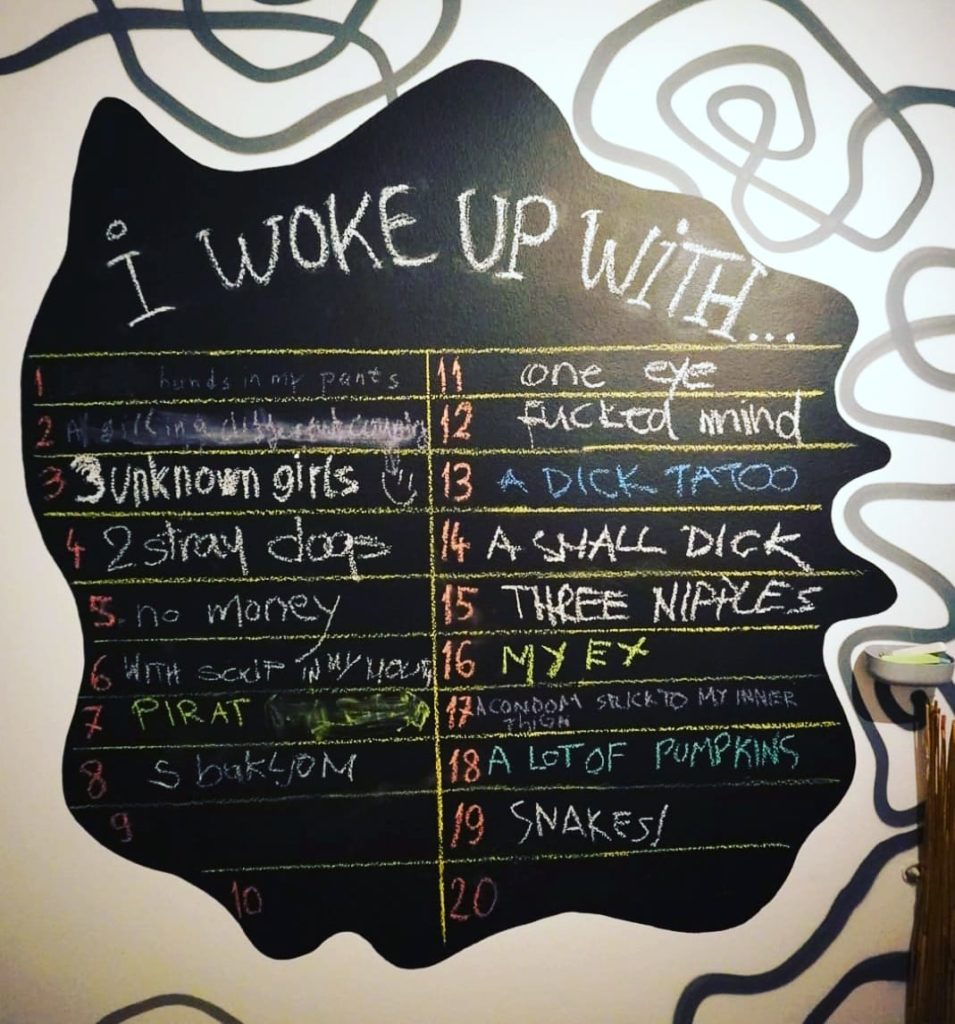 i WOKE UP WiTH...
1 hands in my pants
2
3 3 unknown girls
4 2 stray dogs
5. no money
6 WITH SCUF IN MY MOUTH
7 PIRAT
8 S bakljOM
9
10
11 one eye
12 fucked mind
13 A DICK TATOO
14 A SMALL DICK
15 THREE NIPPLES
16 MY EX
17 A CONDOM STICK TO MY INNER
THIGH
18 A LOT OF PUMPKINS
19 SNAKES!
20